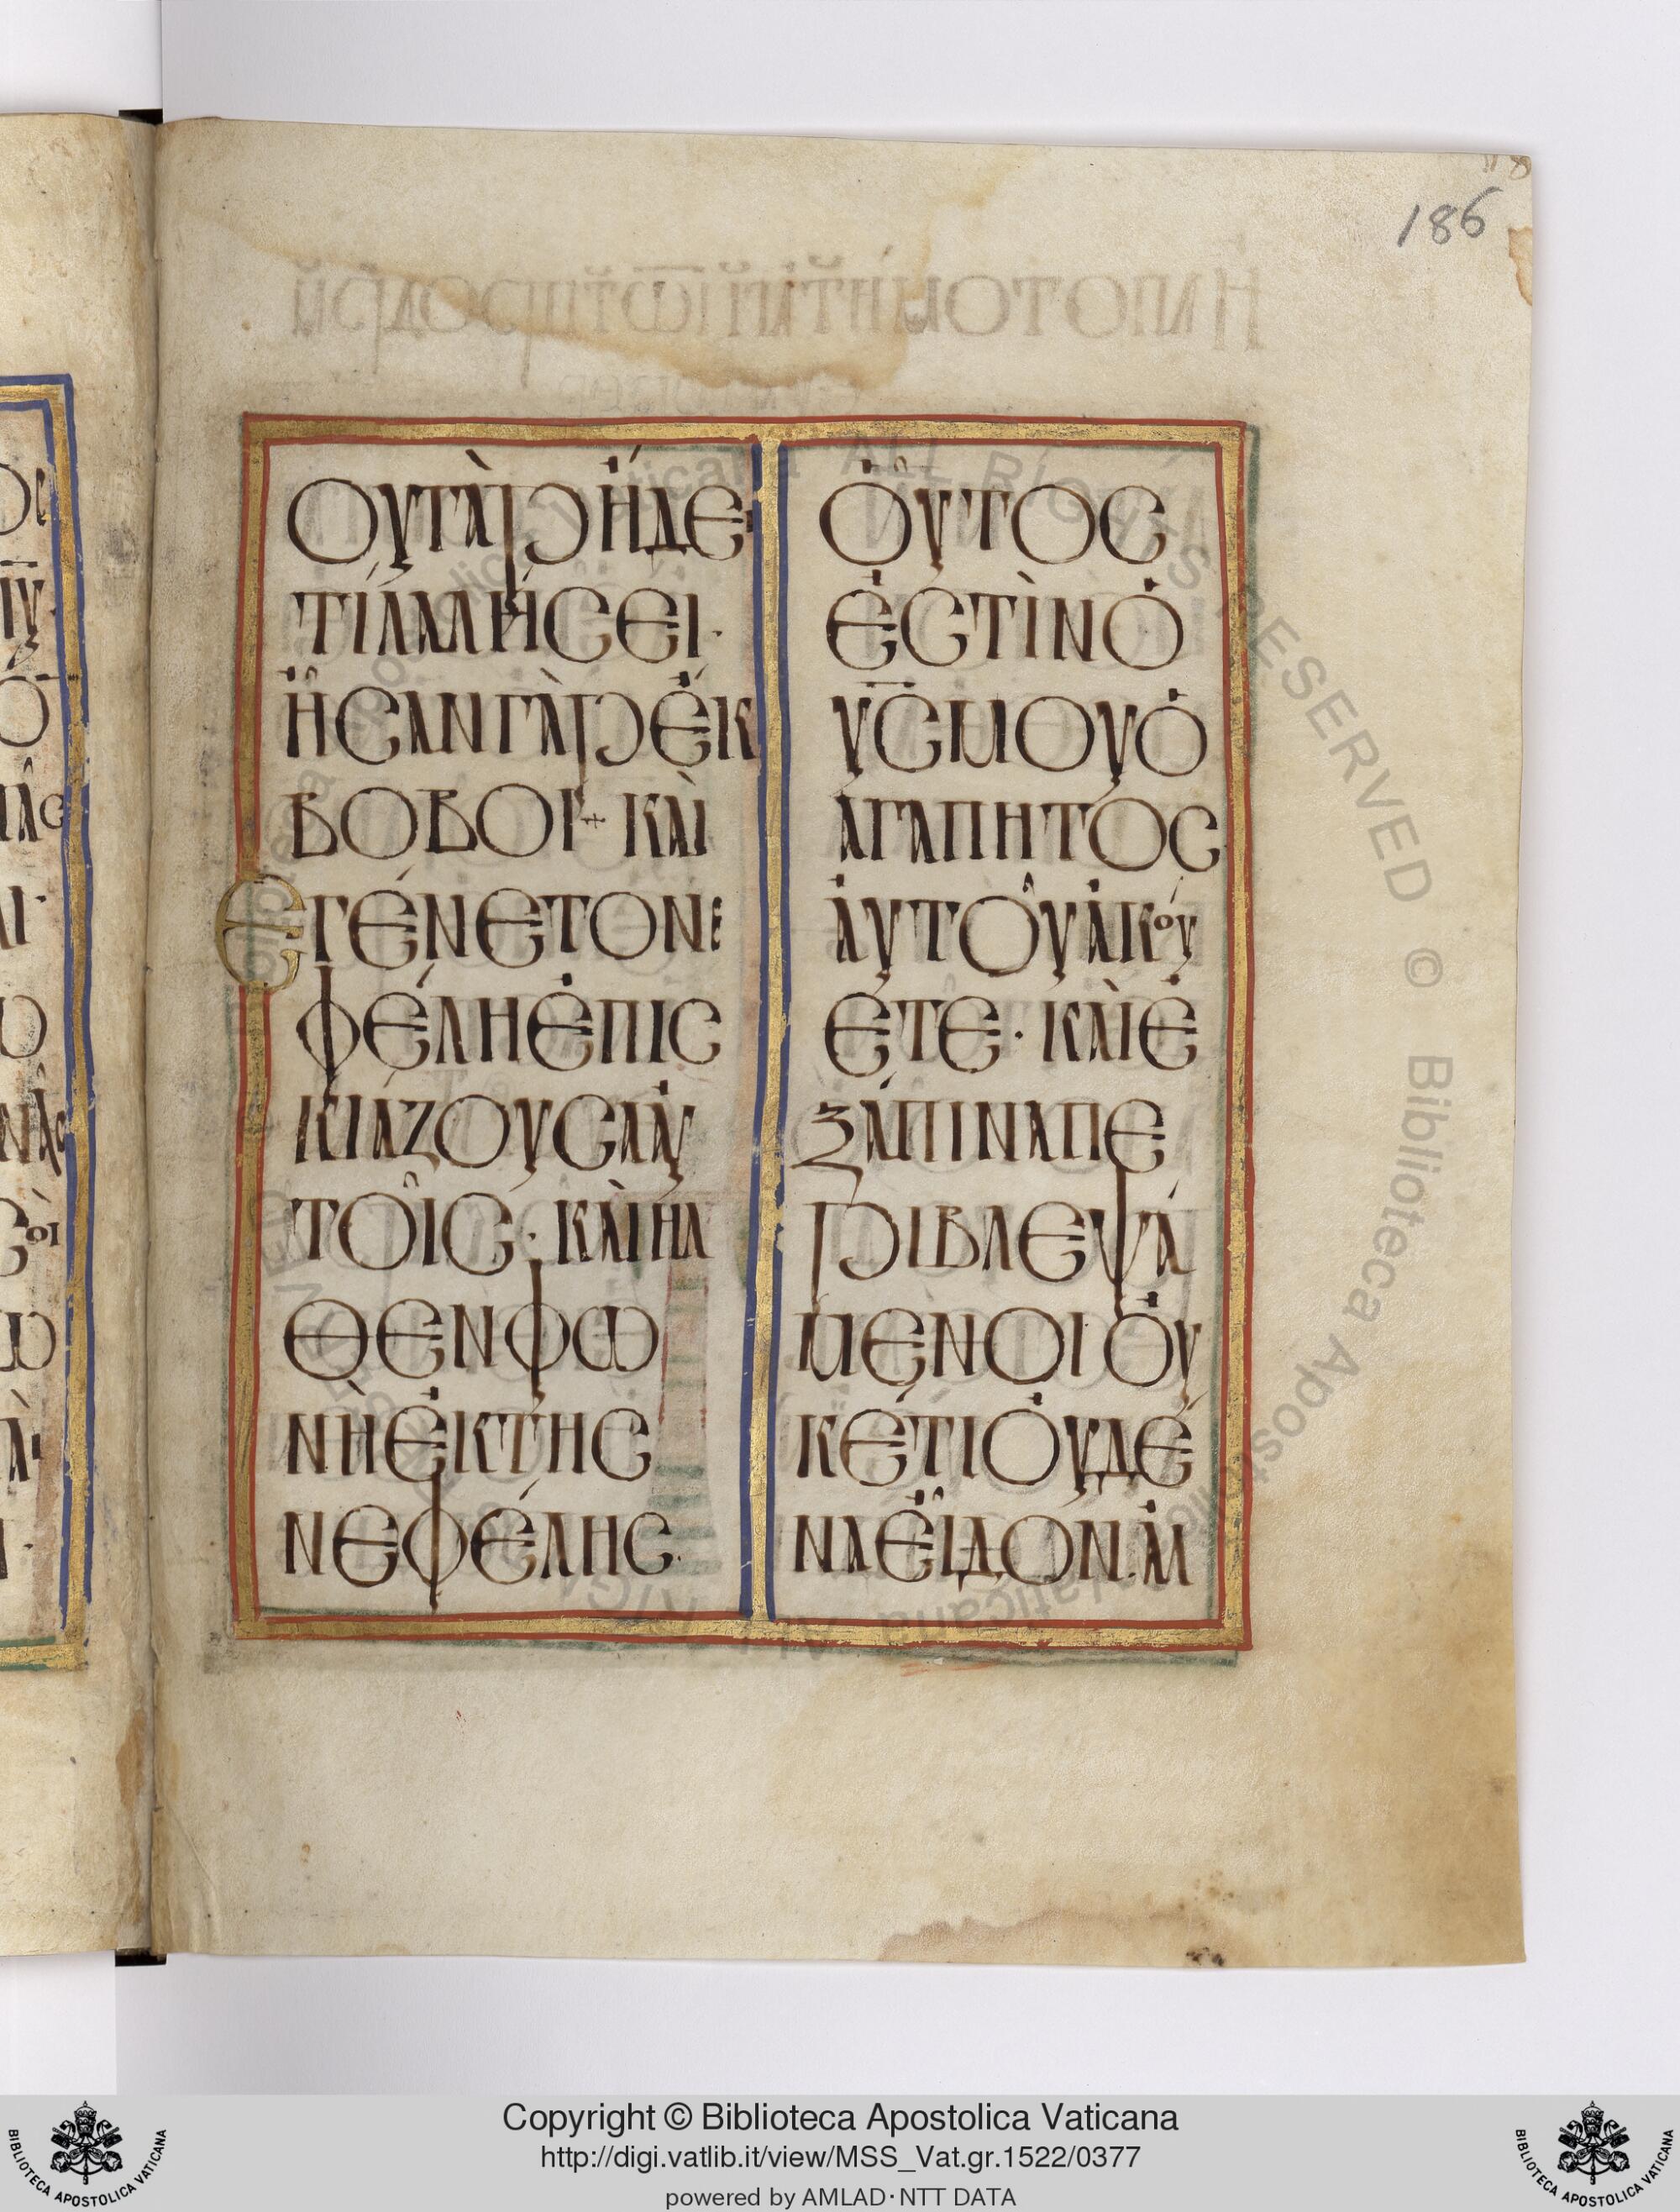 186
ΟΥΓᾺΡἬΔΕ
ΤΊΛΑΛΉϹΕΙ·
ἮϹΑΝΓᾺΡἘΚ
ΦΟΒΟΙ+ΚΑῚ
ΕΓΈΝΕΤΟΝΕ
ΦΈΛΗἘΠΙϹ
ΚΙΆΖΟΥϹΑἈΥ
ΤΟΙ͂Ϲ·ΚΑῚΗ͂Λ
ΘΕΝΦΩ
ΝῊἘΚΤΗ͂Ϲ
ΝΕΦΈΛΗϹ·
ὉΥ͂ΤΟϹ
ἘϹΤῚΝὉ
Υ̅Ϲ̅ΜΟΥὉ
ἈΓΑΠΗΤΌϹ
ἈΥΤΟΥ͂ἈΚΟΎ
ΕΤΕ·ΚΑῚἘ
ΞΆΠΙΝΑΠΕ
ΡΙΒΛΕΨΆ
ΜΕΝΟΙὈΥ
ΚΈΤΙὈΥΔΈ
ΝΑἘΙ͂ΔΟΝ·ἈΛ
Copyright © Biblioteca Apostolica Vaticana
http://digi.vatlib.it/view/MSS_Vat.gr.1522/0377
powered by AMLAD·NTT DATA
BIBLIOTECA APOSTOLICA VATICANA
BIBLIOTECA APOSTOLICA VATICANA